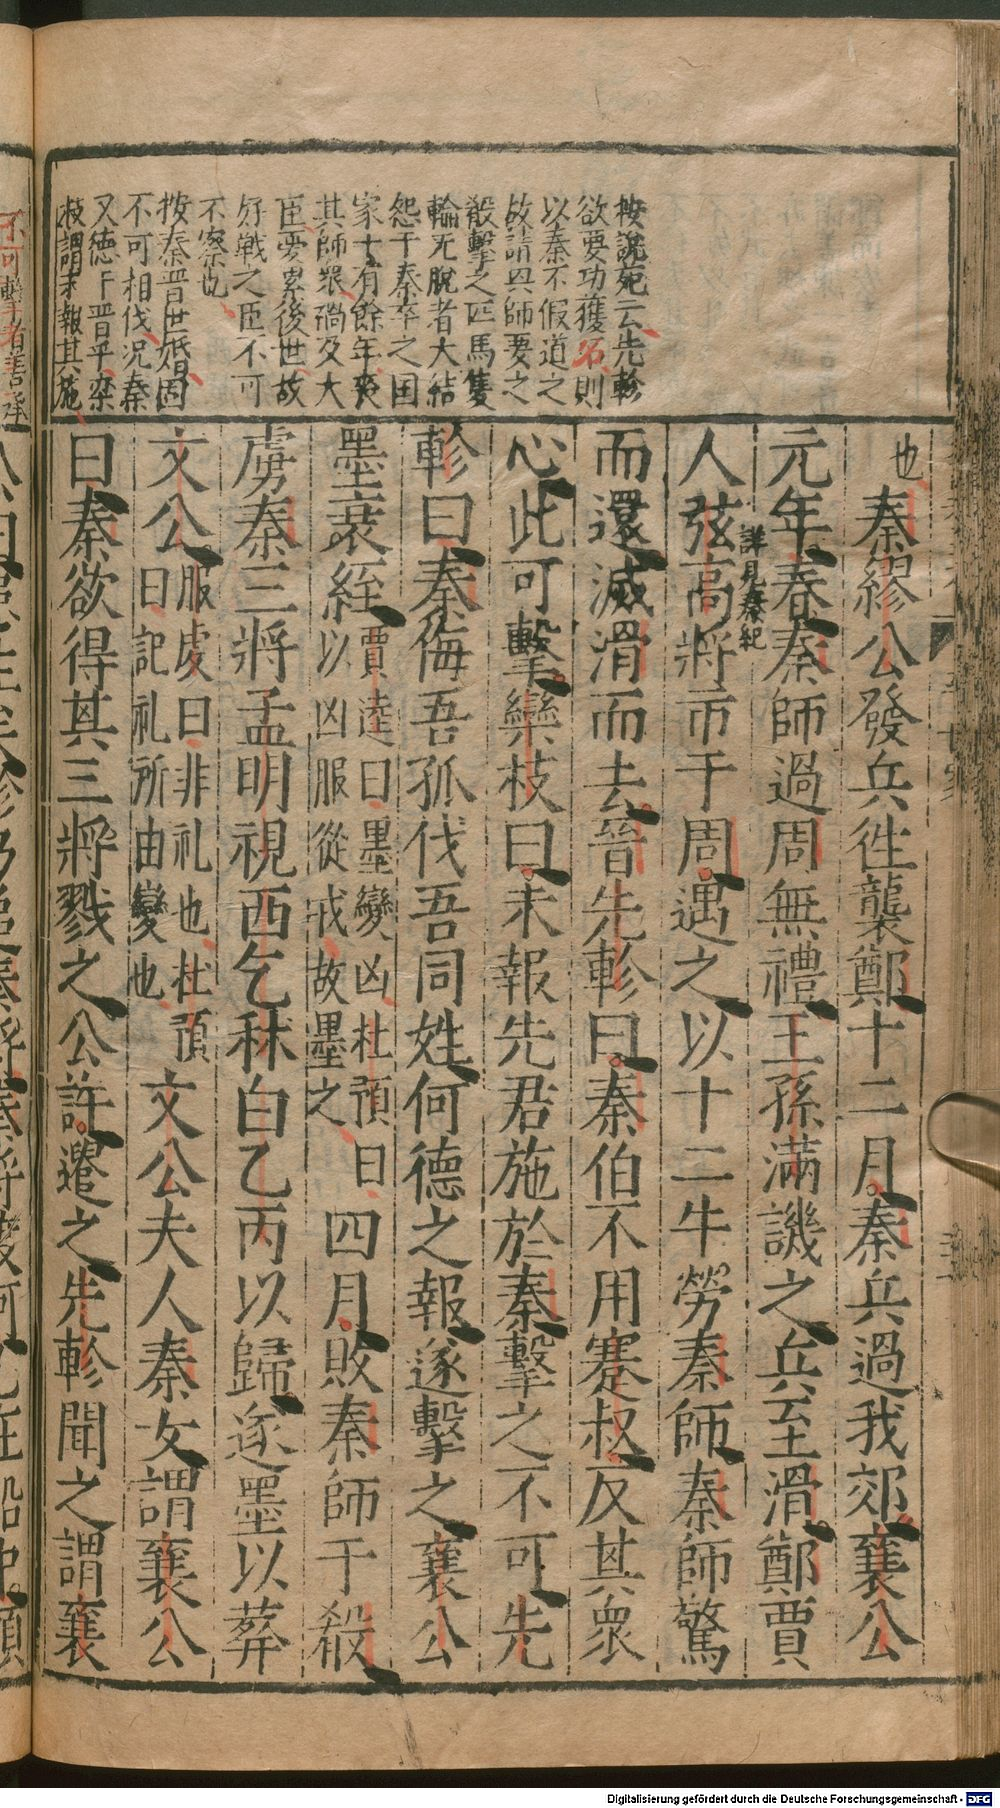 按說苑云先軫
欲要功獲名則
以秦不假道之
故請興師要之
殽擊之匹馬隻
輪无脫者大結
怨于秦卒之国
家十有餘年喪
其師眾禍及大
臣憂累後世故
好戰之臣不可
不察也
按秦晋世婚因
不可相伐况秦
又德于晋乎欒
枝謂未報其施
也秦繆公發兵徃襲鄭十二月秦兵過我郊襄公
元年春秦師過周無禮王孫滿譏之兵至滑鄭賈
詳見秦紀
人弦高將市于周遇之以十二牛勞秦師秦師驚
而還滅滑而去晉先軫曰秦伯不用蹇叔反其眾
心此可擊欒枝曰未報先君施於秦擊之不可先
軫曰秦侮吾孤伐吾同姓何德之報遂擊之襄公
墨衰絰賈逵曰墨變凶杜預曰以凶服從戎故墨之四月敗秦師于殽
虜秦三將孟明視西乞秫白乙丙以歸遂墨以葬
文公服虔曰非礼也杜預曰記礼所由變也文公夫人秦女謂襄公
曰秦欲得其三將戮之公許遣之先軫聞之謂襄
不可擊者善承
Digitalisierung gefördert durch die Deutsche Forschungsgemeinschaft - DFG